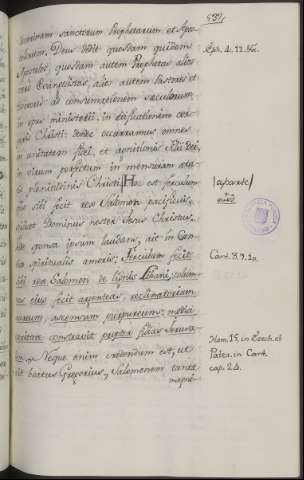 doctrinam sanctorum Prophetarum et Apo-
stolorum. Deus dedit quosdam quidem
Apostolos, quosdam autem Prophetas, alios
vero Evangelistas, alios autem Pastores et
Doctores ad consummationem sanctorum
in opus ministerii, in ædificationem cor-
poris Christi: donec occurramus omnes
in unitatem fidei, et agnitionis Filii Dei,
in virum perfectum in mensuram æta-
tis plenitudinis Christi. Hoc est ferculum
quod sibi fecit rex Salomon pacificus,
Dominus noster Jesus Christus,
sponsa ipsum laudans, ait in Can-
spiritualis amoris; Ferculum fecit
sibi rex Salomon de lignis Libani; colum-
nas ejus fecit argenteas, reclinatorium
aureum, ascensum purpureum; media
caritate constravit propter filias Jerusa-
lem. Neque enim credendum est, ut
beatus Gregorius, Salomonem tantæ
Eph. 4. 11. &c.
aparte
Cant. 3. 9. 10.
Hom. 15. in Ezech. et
Pater. in Cant.
cap. 24.